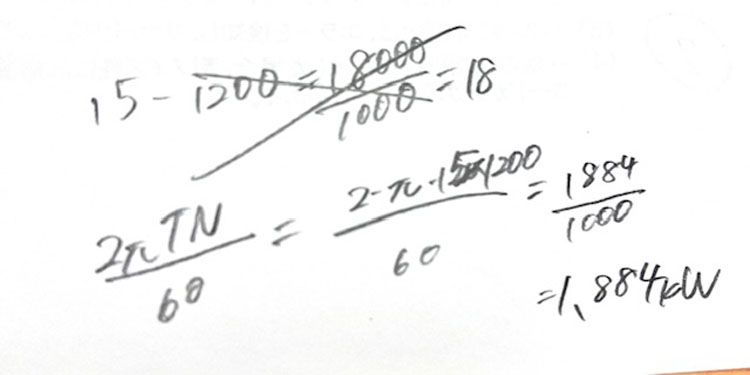 15-1200=18000/1000=18
2πTN/60=2-π-15×1200/60=1884/1000
=1.884kW